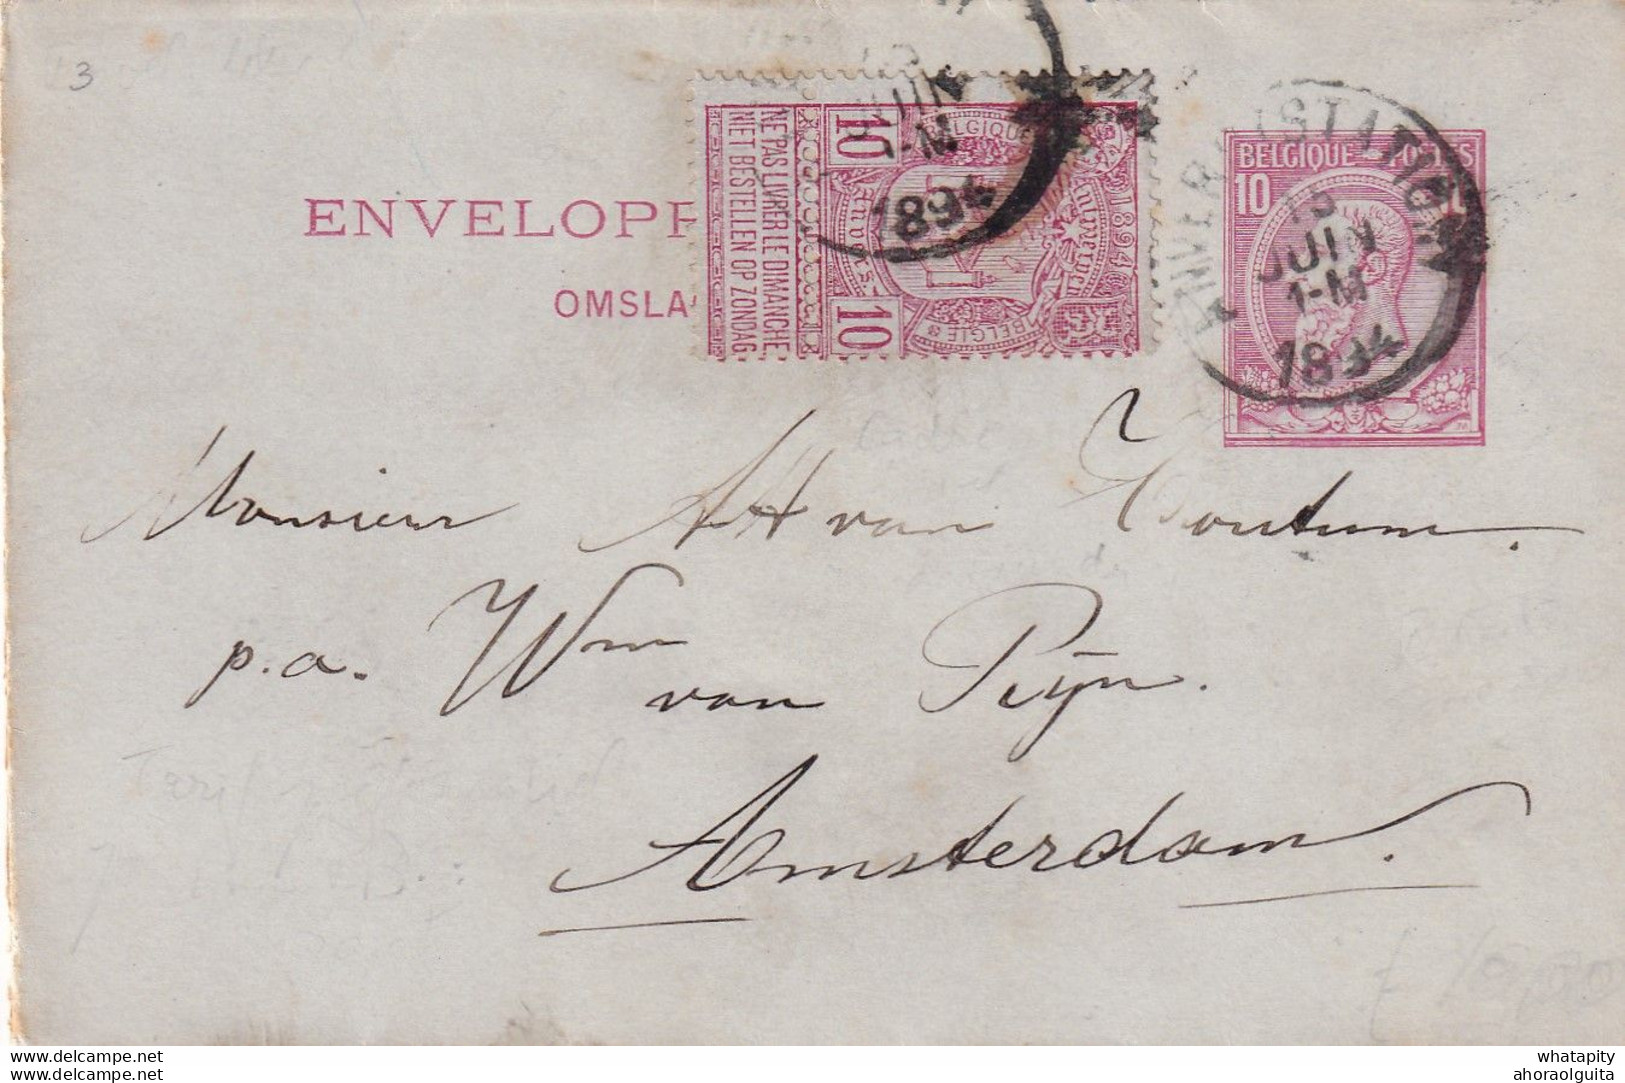 3
ENVELOPP
OMSLA
NE PAS LIVRER LE DIMANCHE
NIET BESTELLEN OP ZONDAG
10
10
BELGIQUE
Antwerpen
Anvers
1894
BELGIE
JUIN
1-M
1894
BELGIQUE - POSTES
10
ANVERS (STATION)
JUIN
1-M
1894
Monsieur AH van
p.a. Wm van Pijn.
Amsterdam.
www.delcampe.net
www.delcampe.net
whatapity
ahoraolguita